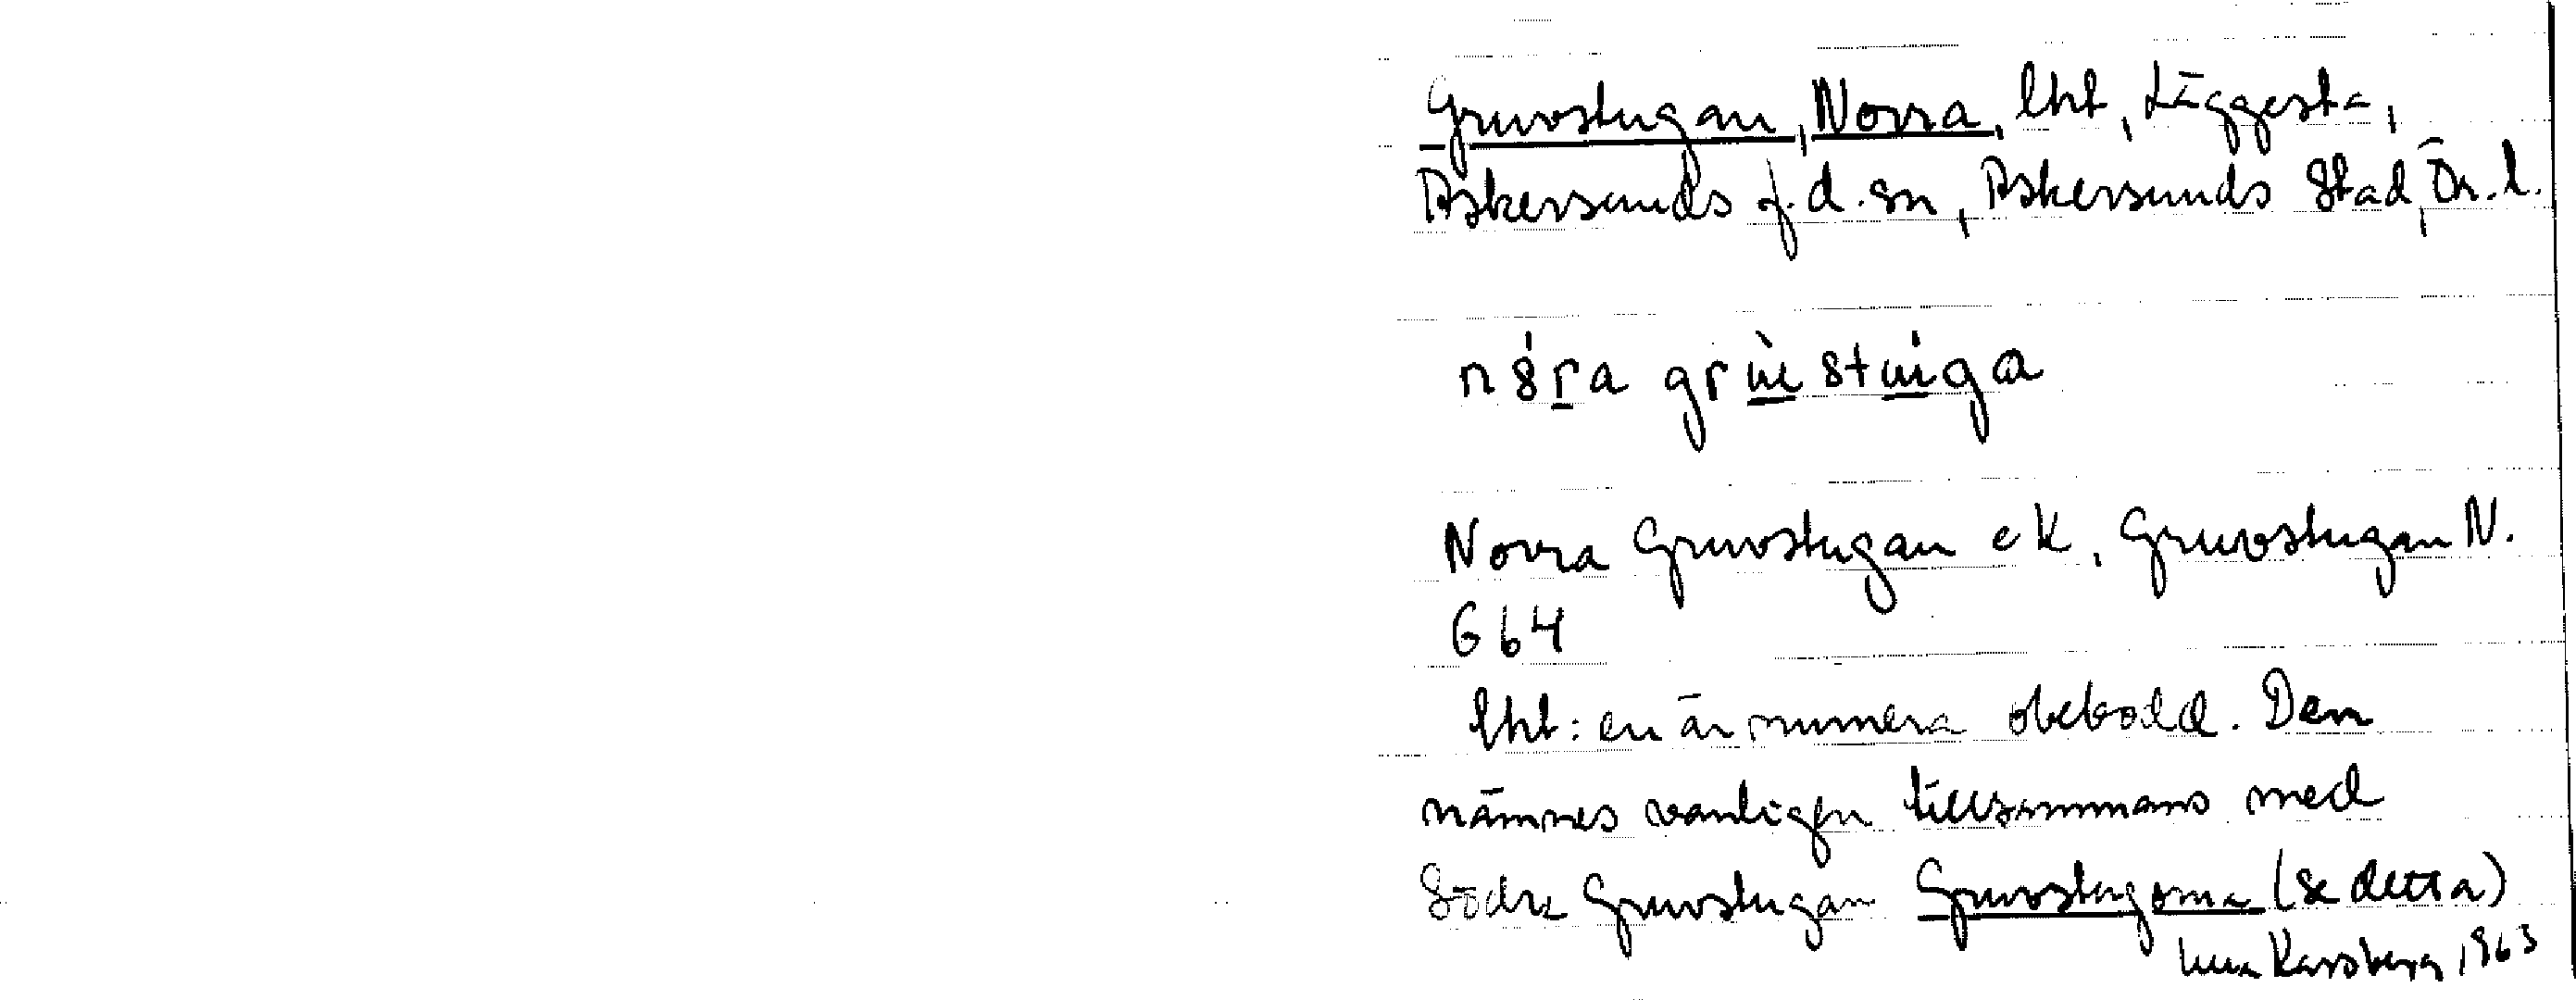 Gruvstugan, Norra, lht, Läggesta,
Askersunds f.d. sn, Askersunds stad, Ör. l.
Norra Gruvstugan ek, Gruvstugan N.
G 64
lht: en är numera obebodd. Den
nämnes vanligen tillsammans med
Södra Gruvstugan Gruvstugorna (se detta)
Karsberg 1963